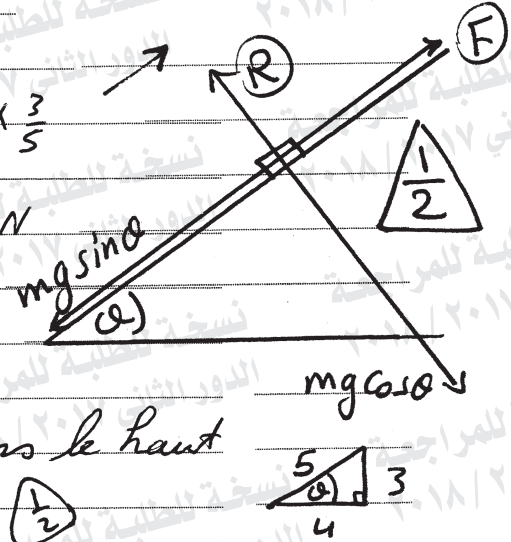 R
F
× 3/5
1/2
N
mg sin θ
θ
mg cos θ
le haut
1/2
5
3
θ
4
نسخة للطلبة للمراجعة
الدور الثاني ٢٠١٧ / ٢٠١٨